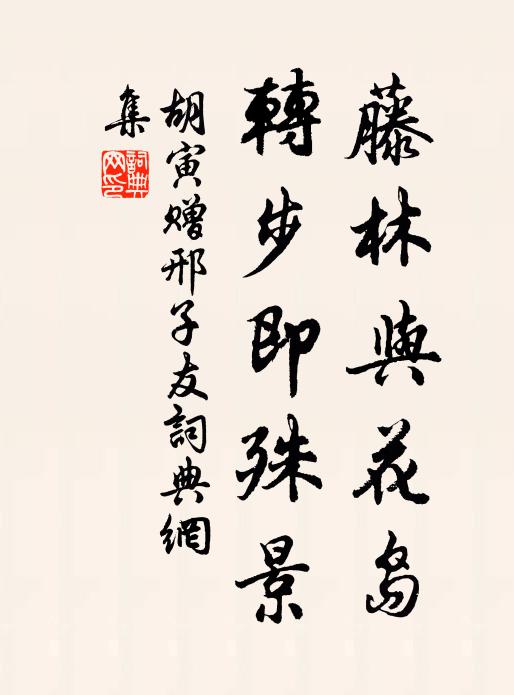 藤林與花島
轉步即殊景
胡寅贈邢子友詞典網
集
詞典
网印